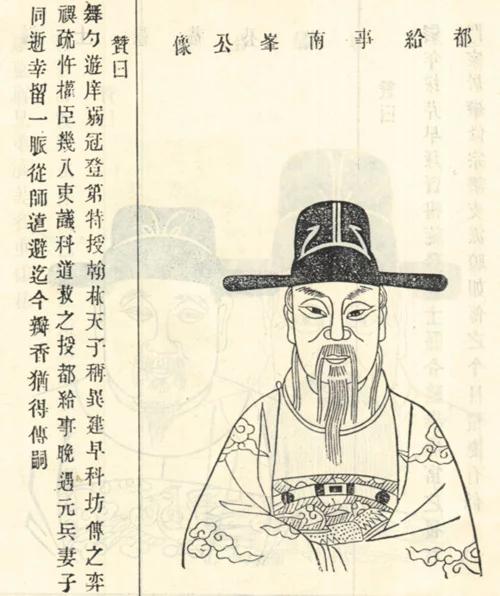 都給事南峯公像
贊曰
舞勺遊庠弱冠登第特授翰林天子稱異建早科坊傳之奕
禩疏忤權臣幾入吏議科道救之授都給事晚遇元兵妻子
同逝幸留一脈從師避迄今瓣香猶得傳嗣